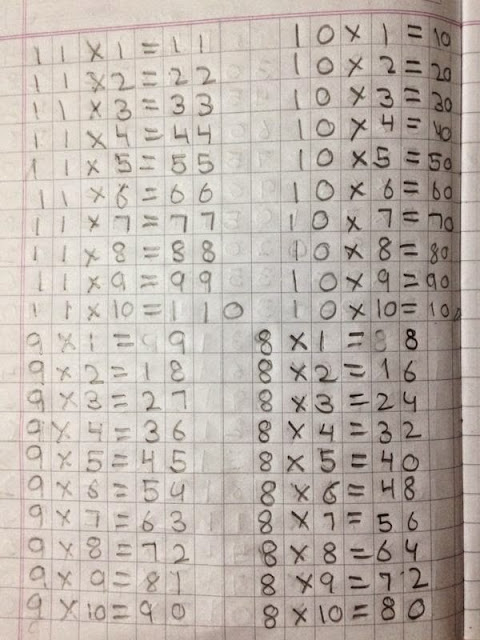 11×1=11 10×1=10
11×2=22 10×2=20
11×3=33 10×3=30
11×4=44 10×4=40
11×5=55 10×5=50
11×6=66 10×6=60
11×7=77 10×7=70
11×8=88 10×8=80
11×9=99 10×9=90
11×10=110 10×10=100
9×1=9 8×1=8
9×2=18 8×2=16
9×3=27 8×3=24
9×4=36 8×4=32
9×5=45 8×5=40
9×6=54 8×6=48
9×7=63 8×7=56
9×8=72 8×8=64
9×9=81 8×9=72
9×10=90 8×10=80